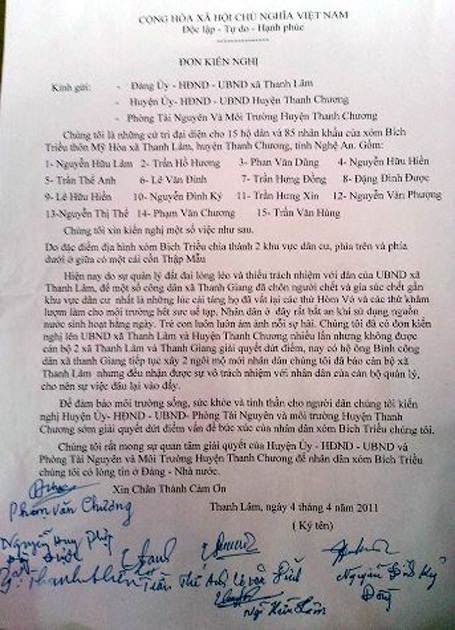 CỘNG HÒA XÃ HỘI CHỦ NGHĨA VIỆT NAM
Độc lập - Tự do - Hạnh phúc
ĐƠN KIẾN NGHỊ
Kính gửi: - Đảng Ủy - HĐND - UBND xã Thanh Lâm
- Huyện Ủy- HĐND - UBND Huyện Thanh Chương
- Phòng Tài Nguyên Và Môi Trường Huyện Thanh Chương
Chúng tôi là những cử tri đại diện cho 15 hộ dân và 85 nhân khẩu của xóm Bích
Triều thôn Mỹ Hòa xã Thanh Lâm, huyện Thanh Chương, tỉnh Nghệ An. Gồm:
1- Nguyễn Hữu Lâm 2- Trần Hồ Hương 3- Phan Văn Dũng 4- Nguyễn Hữu Hiền
5- Trần Thế Anh 6- Lê Văn Đình 7- Trần Hưng Đồng 8- Đặng Đình Được
9- Lê Hữu Hiền 10- Nguyễn Đình Ký 11- Trần Hưng Xin 12- Nguyễn Văn Phượng
13-Nguyễn Thị Thế 14- Phạm Văn Chương 15- Trần Văn Hùng
Chúng tôi xin kiến nghị một số việc như sau.
Do đặc điểm địa hình xóm Bích Triều chia thành 2 khu vực dân cư, phía trên và phía
dưới ở giữa có một cái cồn Thập Mẫu
Hiện nay do sự quản lý đất đai lỏng lẻo và thiếu trách nhiệm với dân của UBND xã
Thanh Lâm, để một số công dân xã Thanh Giang đã chôn người chết và gia súc chết gần
khu vực dân cư nhất là những lúc cải táng họ đã vất lại các thứ Hòm Vó và các thứ khâm
lượm làm cho môi trường hết sức uế tạp. Nhân dân ở đây rất bất an khi sử dụng nguồn
nước sinh hoạt hằng ngày. Trẻ con luôn luôn ám ảnh nỗi sợ hãi. Chúng tôi đã có đơn kiến
nghị lên UBND xã Thanh Lâm và Huyện Thanh Chương nhiều lần nhưng không được
cán bộ 2 xã Thanh Lâm và Thanh Giang giải quyết dứt điểm, nay có hộ ông Bình công
dân xã thanh Giang tiếp tục xây 2 ngôi mộ mới nhân dân chúng tôi đã báo cán bộ xã
Thanh Lâm nhưng đều nhận được sự vô trách nhiệm với nhân dân của cán bộ quản lý,
cho nên sự việc đâu lại vào đấy.
Để đảm bảo môi trường sống, sức khỏe và tinh thần cho người dân chúng tôi kiến
nghị Huyện Ủy- HĐND - UBND- Phòng Tài Nguyên và môi trường Huyện Thanh
Chương sớm giải quyết dứt điểm vấn đề bức xúc của nhân dân xóm Bích Triều chúng tôi.
Chúng tôi rất mong sự quan tâm giải quyết của Huyện Ủy - HĐND - UBND và
Phòng Tài Nguyên và Môi Trường Huyện Thanh Chương để nhân dân xóm Bích Triều
chúng tôi có lòng tin ở Đảng - Nhà nước.
Xin Chân Thành Cảm Ơn
Thanh Lâm, ngày 4 tháng 4 năm 2011
( Ký tên)
Phạm Văn Chương
Trần Thế Anh Lê văn Đình Nguyễn Đình Ký